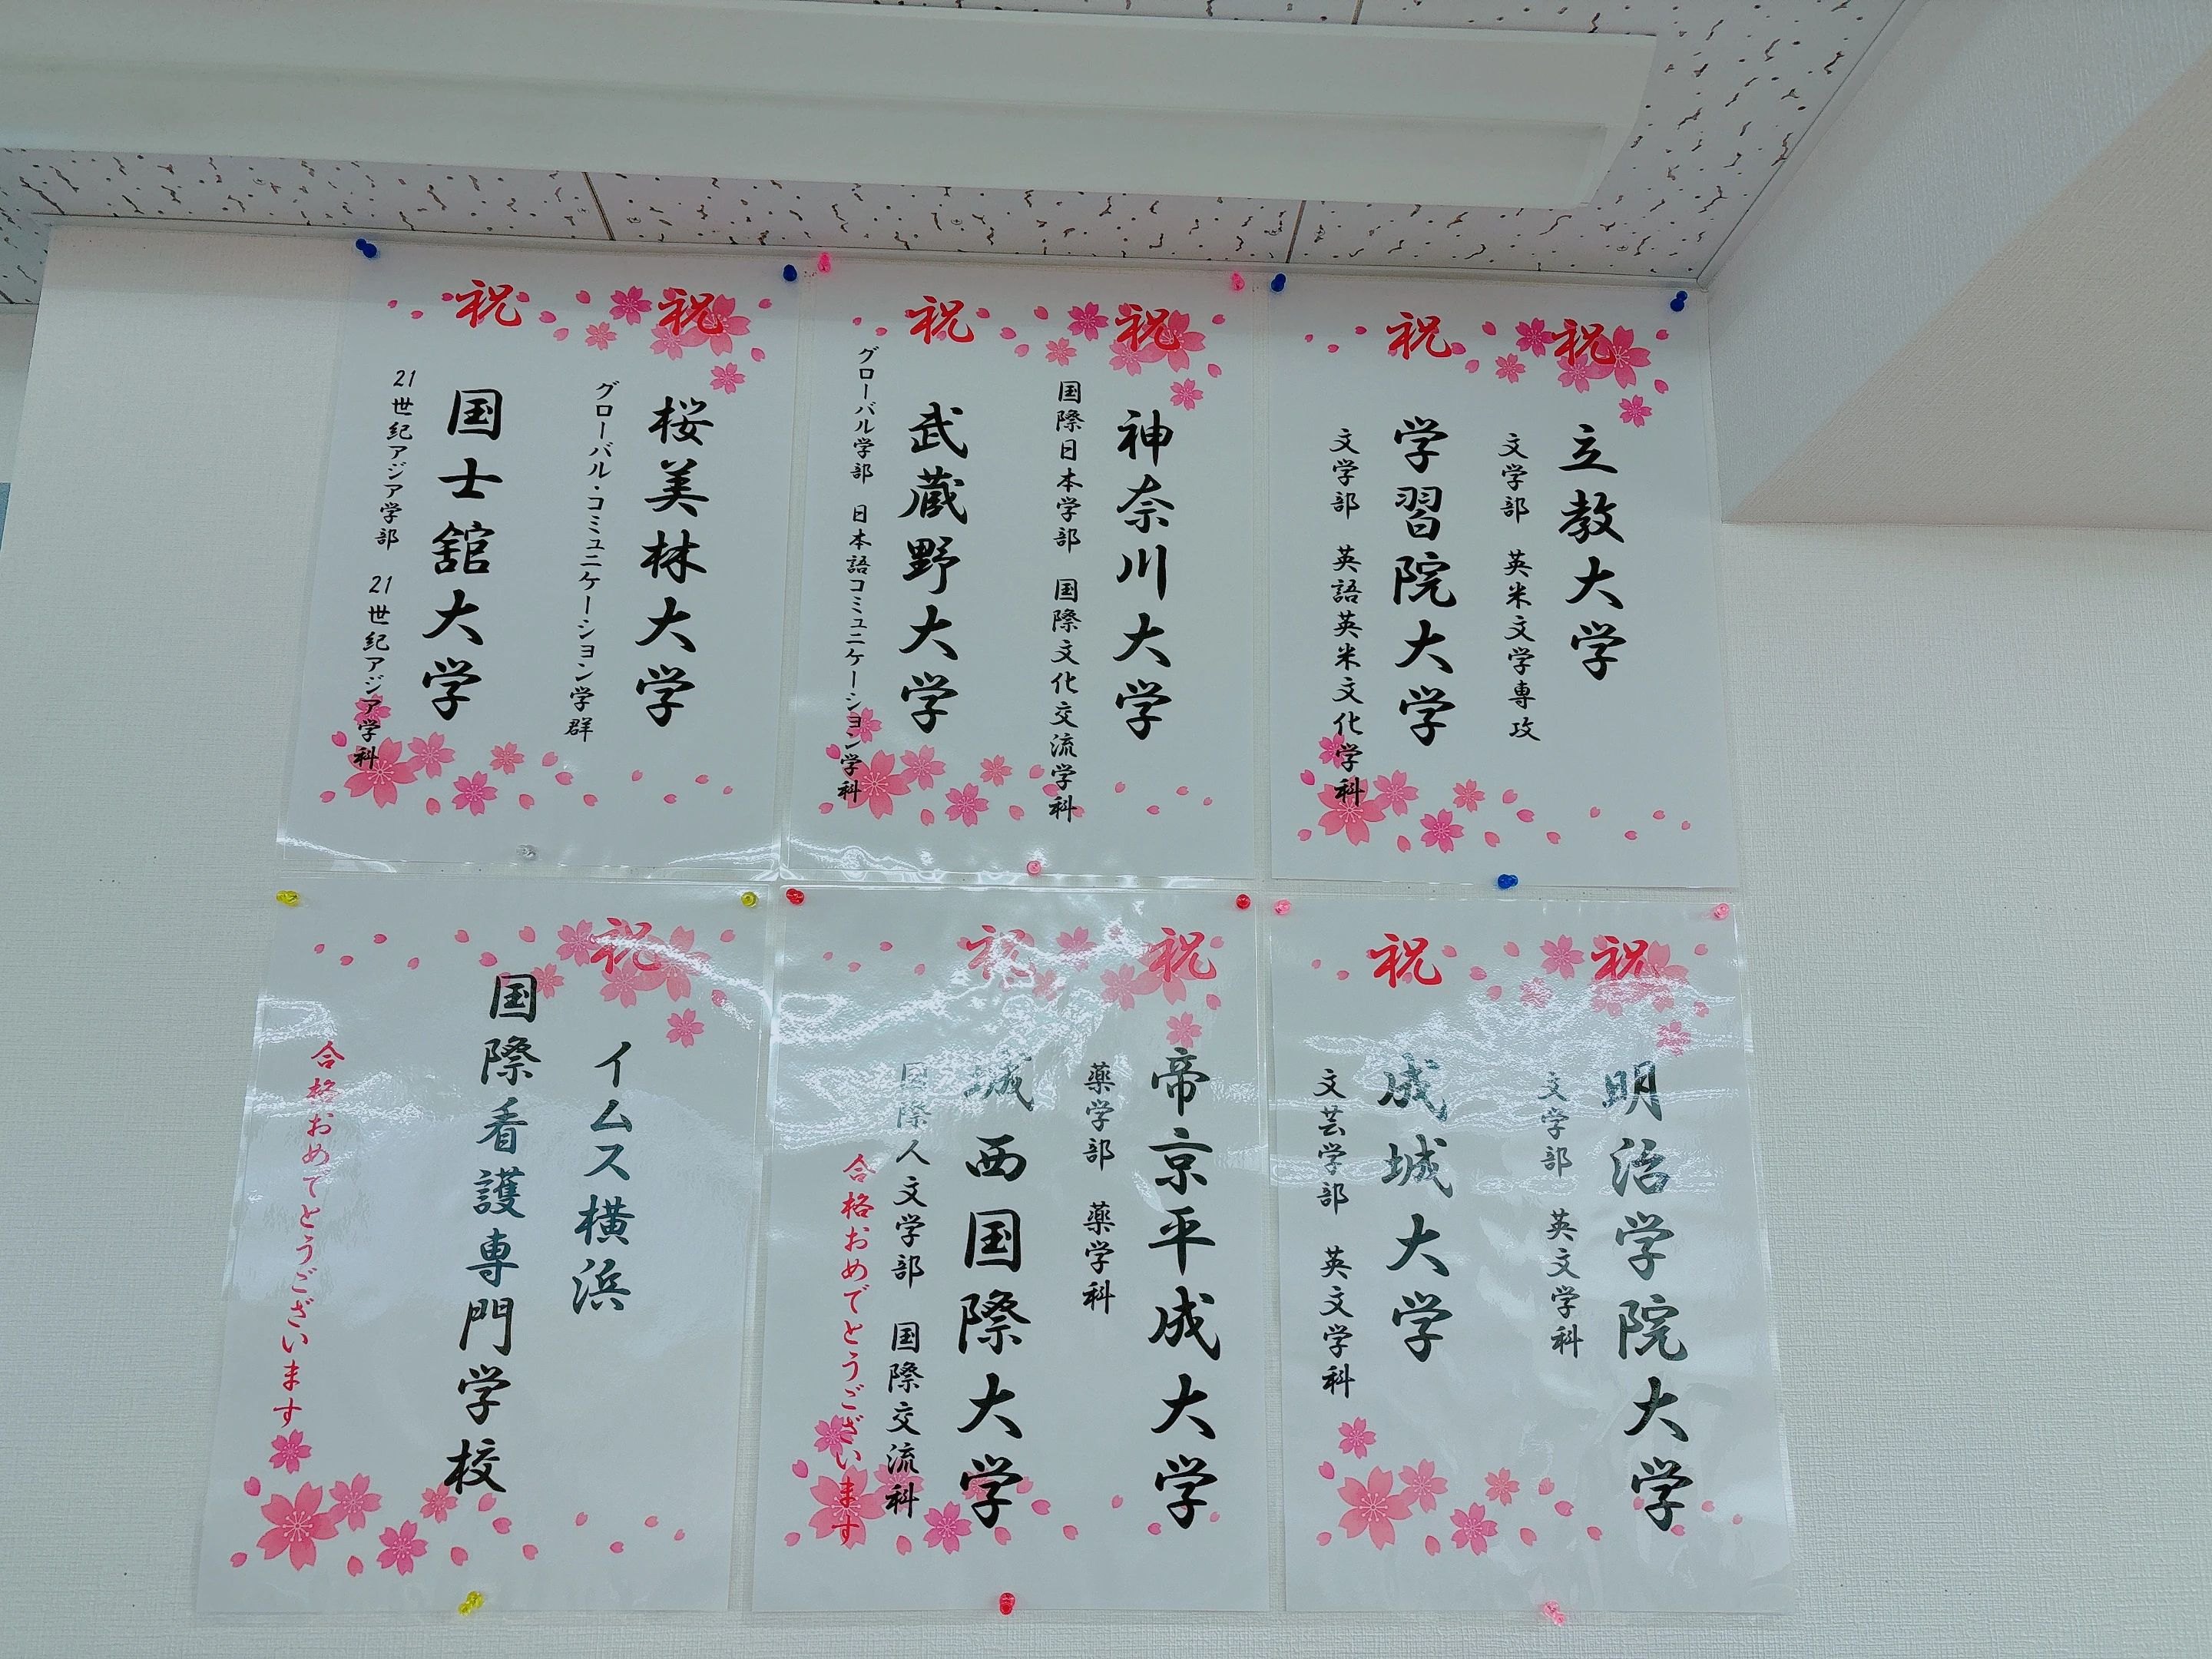 祝
立教大学
文学部 英米文学専攻
祝
学習院大学
文学部 英語英米文化学科
祝
神奈川大学
国際日本学部 国際文化交流学科
祝
武蔵野大学
グローバル学部 日本語コミュニケーション学科
祝
桜美林大学
グローバル・コミュニケーション学群
祝
国士舘大学
21世紀アジア学部 21世紀アジア学科
祝
明治学院大学
文学部 英文学科
祝
成城大学
文芸学部 英文学科
祝
帝京平成大学
薬学部 薬学科
祝
城西国際大学
国際人文学部 国際交流科
合格おめでとうございます
祝
イムス横浜
国際看護専門学校
合格おめでとうございます